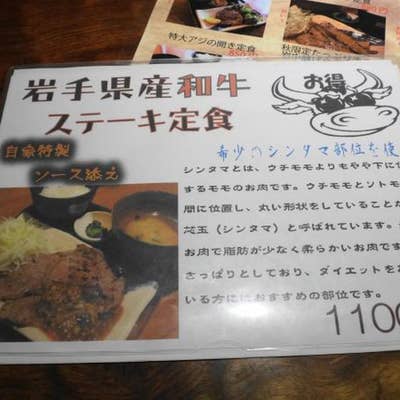 特大アジの開き定食
岩手県産和牛
お得
ステーキ定食
自家特製
ソース添え
希少のシンタマ部位を使
シンタマとは、ウチモモよりもやや下に位
するモモのお肉です。ウチモモとソトモ
間に位置し、丸い形状をしていることか
芯玉(シンタマ)と呼ばれています。
お肉で脂肪が少なく柔らかいお肉です
さっぱりとしており、ダイエットをお
いる方にはおすすめの部位です。
1100